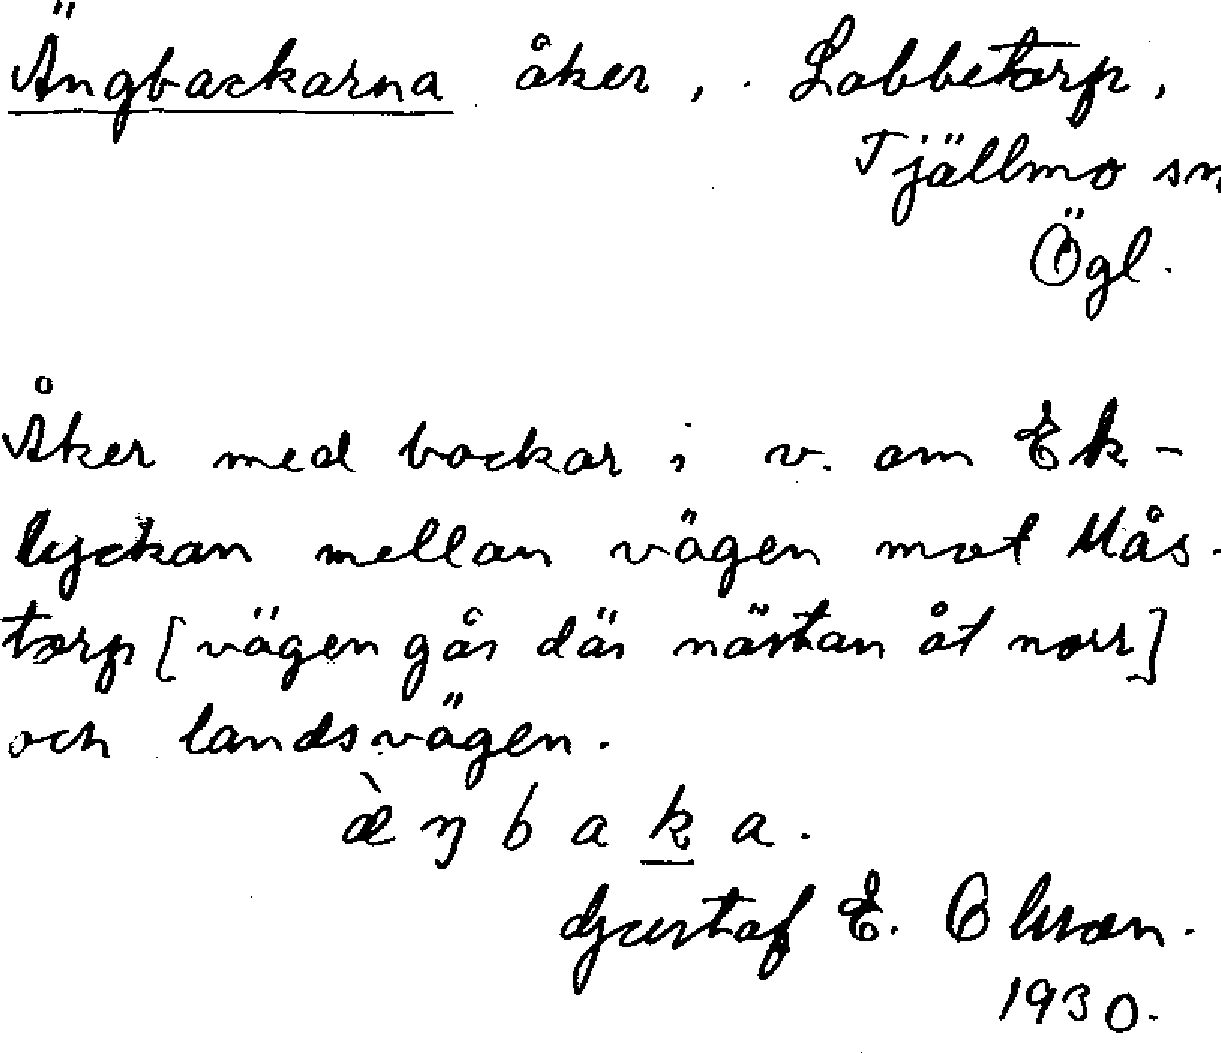 Ängbackarna åker, Lobbetorp,
Tjällmo sn
Ögl.
Åker med backar i v. om Ek-
lyckan mellan vägen mot Mås-
torp [vägen går där nästan åt norr]
och landsvägen.
æ̀ŋbaka.
Gustaf E. Olsson.
1930.